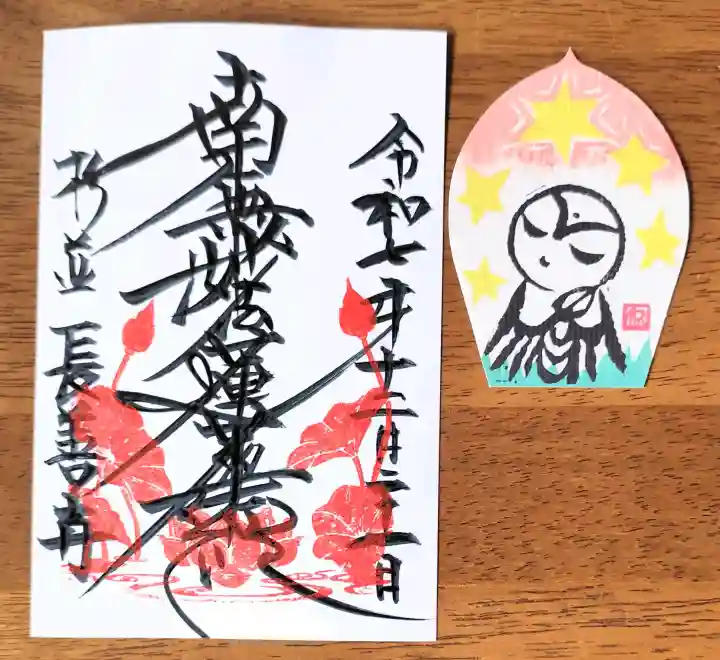 令和七年十二月二十一日
南無妙法蓮華経
杉並 長善寺